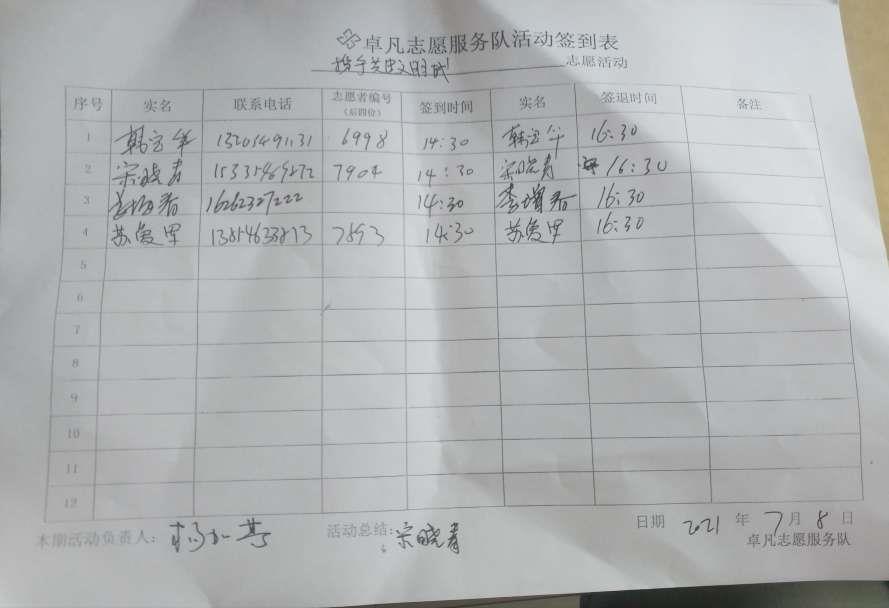 卓凡志愿服务队活动签到表
携手共建文明城 志愿活动
序号 实名 联系电话 志愿者编号（后四位） 签到时间 实名 签退时间 备注
1 6998 14:30 16:30
2 宋晓青 7904 14:30 宋晓青 16:30
3 16262327222 14:30 李增春 16:30
4 苏爱军 7893 14:30 苏爱军 16:30
5
6
7
8
9
10
11
12
本期活动负责人： 活动总结：宋晓青 日期 2021 年 7 月 8 日
卓凡志愿服务队